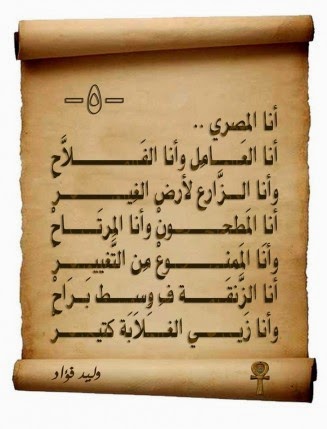 -٥-
أنا المصري ..
أنا العَـامِل وأنا الفَـــلَّاح
وأنا الـزَّارع لأرض الغِيــر
أنا المَطحـــونْ وأنا المِرتَـاحْ
وأنَا المَمنــوعْ مِن التَّغييــر
أنا الزَّنقَـــة فِ وِسـط بَـرَاحْ
وأنا زَيــي الغَـلَابَة كتيــر
وليد فؤاد